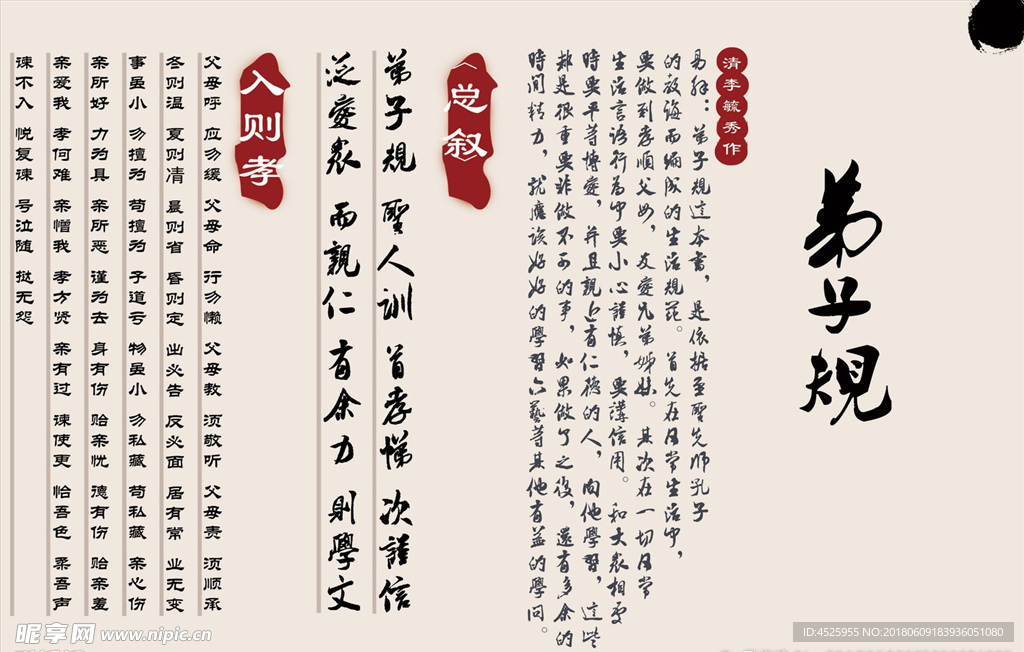 弟子規
清李毓秀作
易解：弟子規這本書，是依据至聖先师孔子
的教誨而編成的生活規范。首先在日常生活中，
要做到孝順父母，友愛兄弟姊妹。其次在一切日常
生活言语行為中要小心謹慎，要講信用。和大衆相處
時要平等博愛，并且親近有仁德的人，向他學習，這些
都是很重要非做不可的事，如果做了之後，還有多余的
時间精力，就應该好好的學習六藝等其他有益的學问。
〈总叙〉
弟子規 聖人训 首孝悌 次謹信
泛愛衆 而親仁 有余力 則學文
入则孝
父母呼 应勿缓 父母命 行勿懒 父母教 须敬听 父母责 须顺承
冬则温 夏则凊 晨则省 昏则定 出必告 反必面 居有常 业无变
事虽小 勿擅为 苟擅为 子道亏 物虽小 勿私藏 苟私藏 亲心伤
亲所好 力为具 亲所恶 谨为去 身有伤 贻亲忧 德有伤 贻亲羞
亲爱我 孝何难 亲憎我 孝方贤 亲有过 谏使更 怡吾色 柔吾声
谏不入 悦复谏 号泣随 挞无怨
昵享网 www.nipic.cn
ID:4525955 NO:20180609183936051080